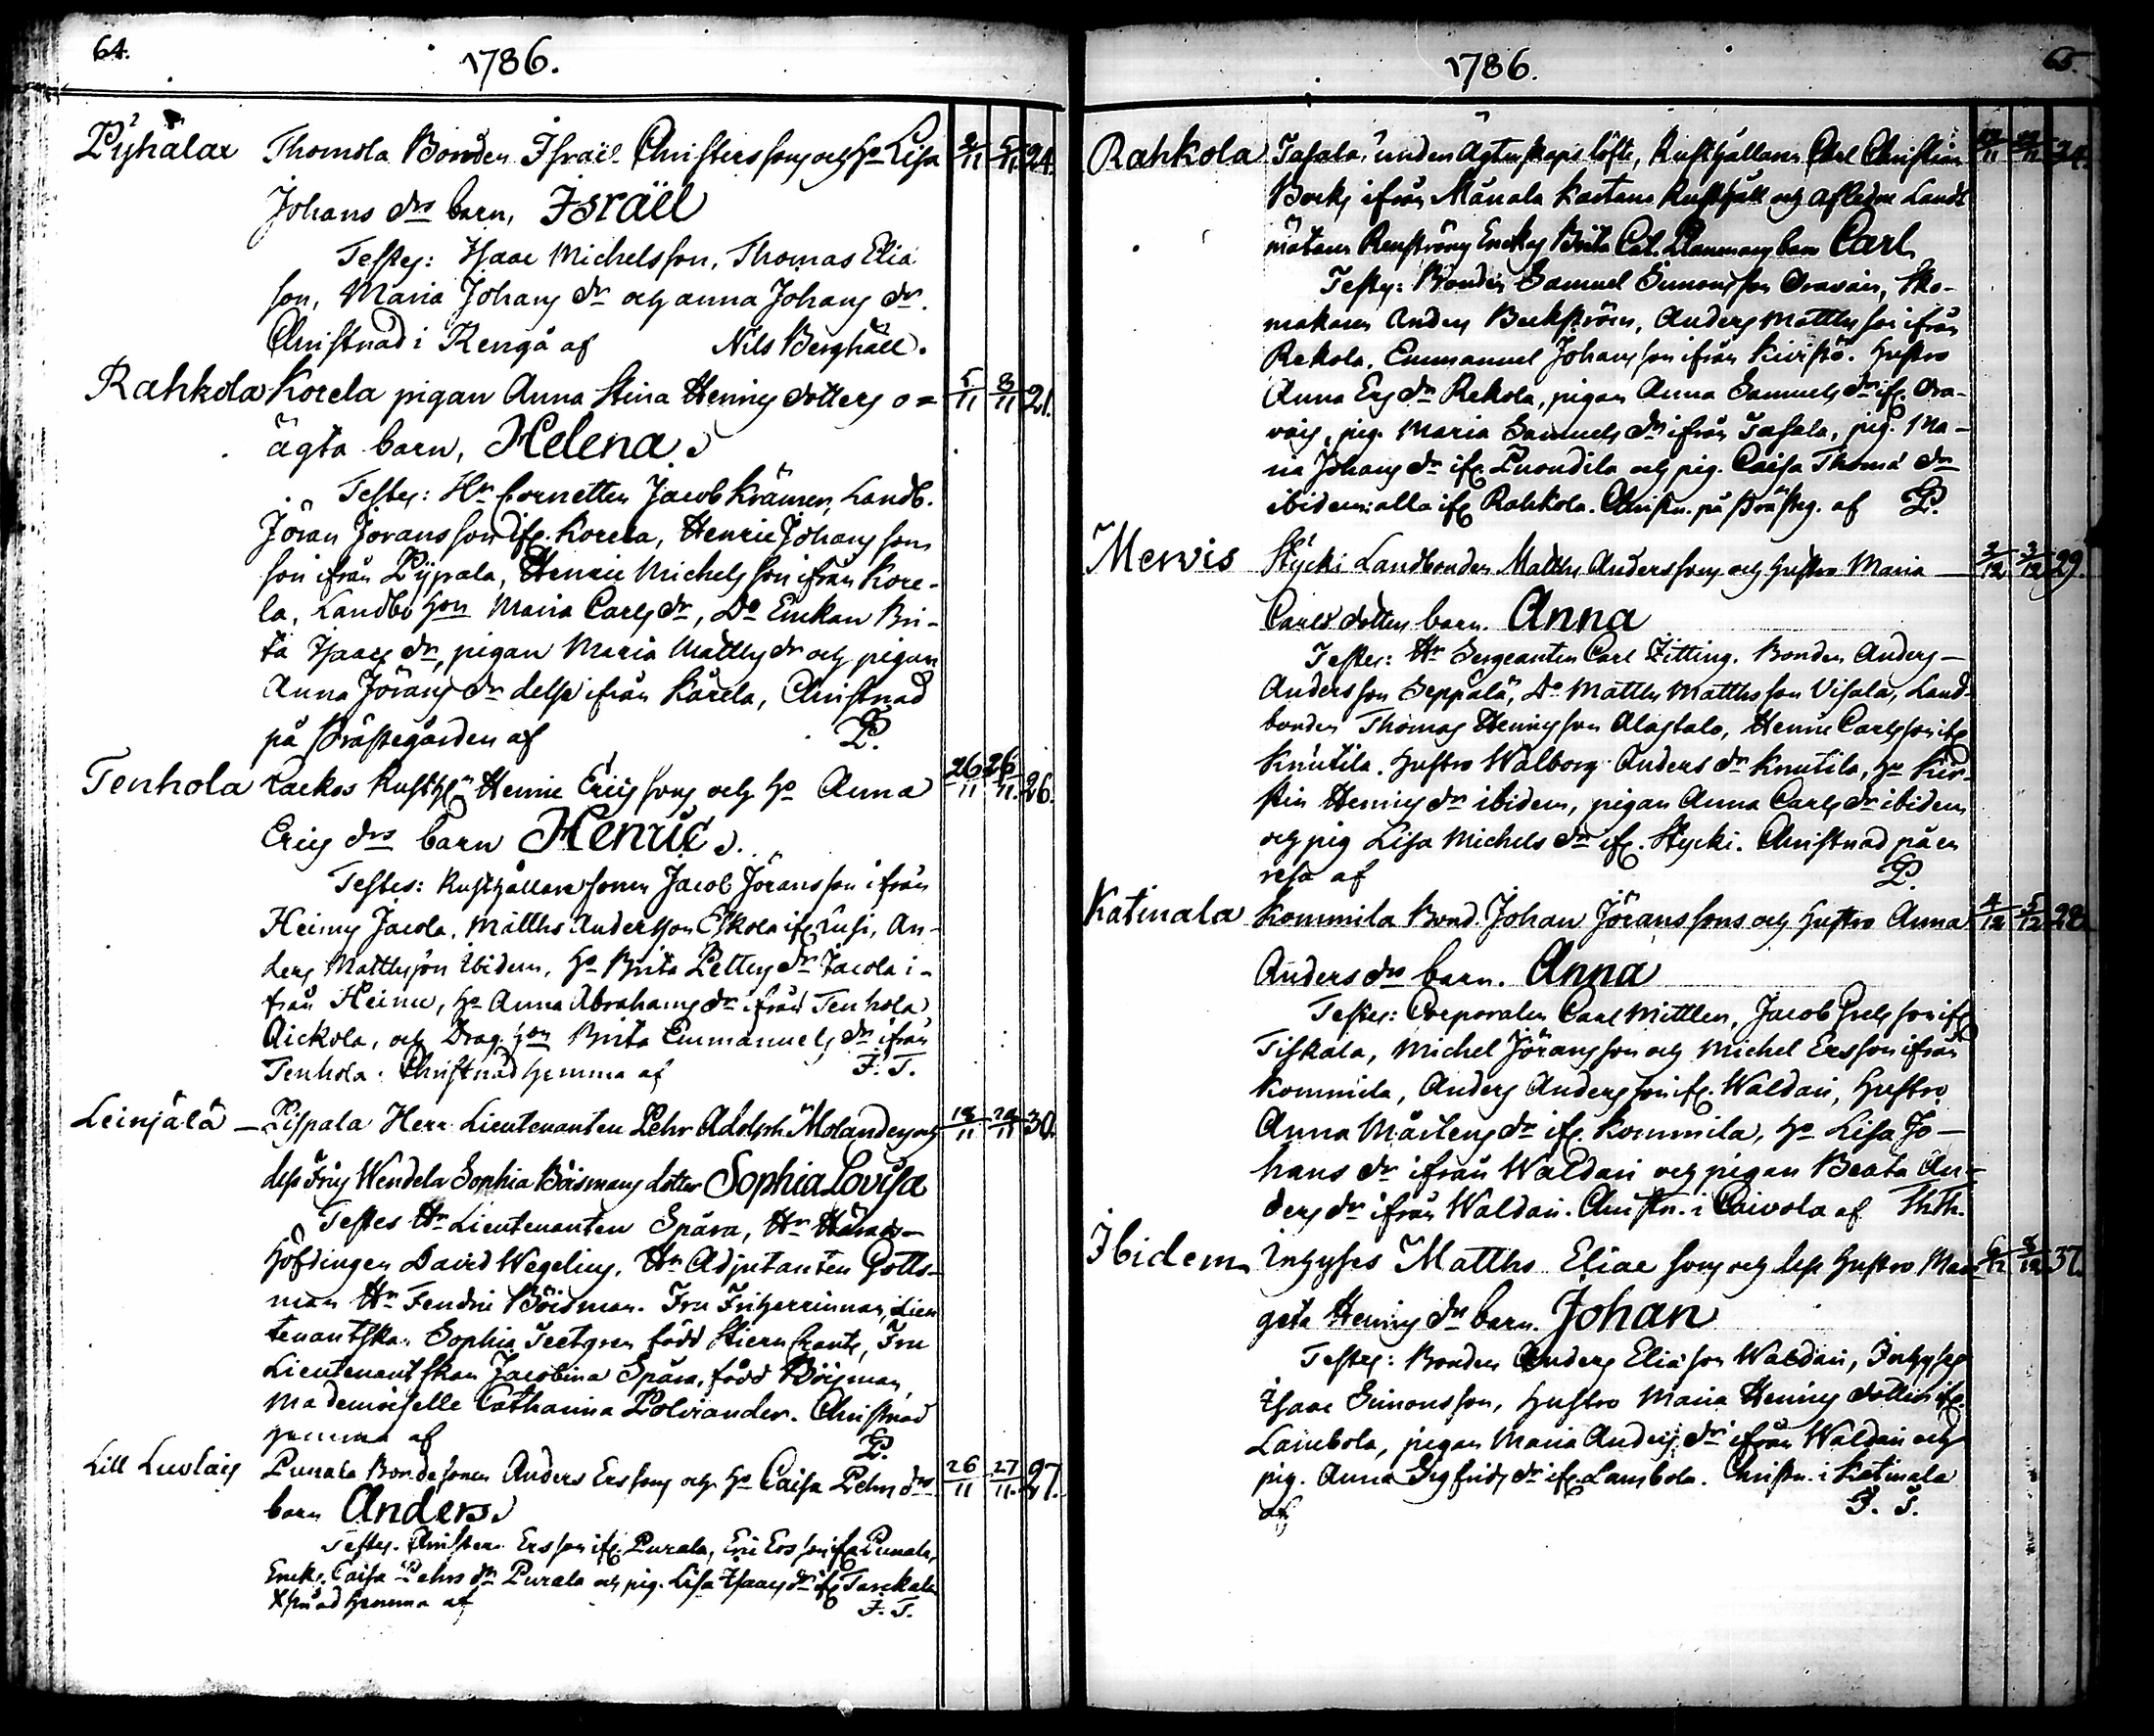 64.
1786.
Pyhälax Thomola Bonden Israël Christerssons och Ho Lisa 3/11 5/11 24.
Johans drs barn, Israël
Testes: Isaac Michelsson, Thomas Elia
son, Maria Johans dr och Anna Johans dr.
Christnad i Rengå af Nils Berghäll.
Rahkola Korela pigan Anna Stina Henrics dotters o= 5/11 8/11 21.
ägta barn, Helena
Testes: Hr Cornetten Jacob Krämer, Landb.
Jöran Joransson ifr. Korela, Henric Johans son
son ifrån Pijpala, Henric Michelsson ifrån Kore-
la, Landbo hon Maria Carls dr, Do Enckan Bri-
ta Isaacs dr, pigan Maria Matths dr och pigan
Anna Jörans dr desse ifrån Kårela, Christnad
på Prästegården af P.
Tenhola Laekos Rusth. Henric Erics sons och Ho Anna 26/11 26/11. 26.
Erics drs barn Henric.
Testes: Rusthållare sonen Jacob Jöransson ifrån
Heinu Jacola, Matths Andersson Eskola ifr. Lusi, An-
ders Matthsson ibidem, Ho Brita Petters dr Jacola i-
från Heinu, Ho Anna Abrahams dr ifrån Tenhola
Aickola, och Drag. hon Brita Emmanuels dr ifrån
Tenhola. Christnad hemma af F. T.
Leinjälä Pispala Herr Lieutenanten Pehr Adolph Molanders och 18/11 /11 30.
dess Frus Wendela Sophia Böismans dotter Sophia Lovisa
Testes Hr Lieutenanten Spåra, Hr Härads-
höfdingen David Wegelius, Hr Adjutanten Gotts-
man Hr Fendric Böisman. Fru Friherrinnan, Lieu
tenantskan Sophia Teetgren född Stierncrantz, Fru
Lieutenantskan Jacobina Spåra, född Böisman,
Mademoiselle Catharina Polviander. Christnad
hemma af P.
Lill Luolais Punala Bondesonen Anders Erssons och Ho Caisa Pehrs drs 26/11 27/11. 27.
barn Anders
Testes. Christer Ersson ifr. Purala, Eric Ersson ifr. Punala,
Enck. Caisa Pehrs dr Purala och pig. Lisa Isaacs dr ifr.
Xstnad hemma af F. T.
65.
1786.
Rahkola Tasala, under ägtenskaps löfte, Rusthållaren Carl Christian /11 34.
ifrån Månala Kartano Rusthåll och afledne Landt
mätaren Renströms Enckas Brita Cat. barn Carl
Testes: Bonden Samuel Simonsson Oravais, Sko-
makaren Anders Beckström, Anders Matthsson ifrån
Rekola, Emmanuel Johansson ifrån Kivistö. Hustro
Anna Ers dr Rekola, pigan Anna Samuels dr ifr. Ora-
vais, pig. Maria Samuels dr ifrån Tasala, pig. Ma-
ria Johans dr ifr. Puondila och pig. Caisa Thoma dr
ibidem: alla ifr. Rahkola. Christn. på Prästeg. af P.
Mervis Stycki Landbonden Matths Anderssons och hustro Maria 3/12 3/12 29.
Carls dotters barn. Anna
Testes: Hr Sergeanten Carl Zitting. Bonden Anders
Andersson Seppälä, Do Matths Matthsson Visala, Land-
bonden Thomas Henricsson Alastalo, Henric Carlsson ifr.
Knutila. Hustro Walborg Anders dr Knutila, Ho Kir-
stin Henrics dr ibidem, pigan Anna Carls dr ibidem
och pig Lisa Michels dr ifr. Stycki. Christnad på en
resa af P.
Katinala Kommila Bond. Johan Jöranssons och hustro Anna 4/12 5/12 28.
Anders drs barn. Anna
Testes: Corporalen Carl Mittler, Jacob son ifr.
Tiskala, Michel Jöransson och Michel Ersson ifrån
Kommila, Anders Andersson ifr. Waldari, Hustro
Anna Mårtens dr ifr. Kommila, Ho Lisa Jo-
hans dr ifrån Waldari och pigan Beata An-
ders dr ifrån Waldari. Christn. i Caivola af ThTh.
Ibidem Inhyses Matths Eliae sons och dess hustro Mar- 6/12 8/12 37.
geta Henrics drs barn. Johan
Testes: Bonden Anders Eliason Waldari, Inhyses
Isaac Simonsson, hustro Maria Henrics dotter ifr.
Lambola, pigan Maria Anders dr ifrån Waldari och
pig. Anna Sigfrids dr ifr. Lambola. Christn. i Katinala
af F. T.